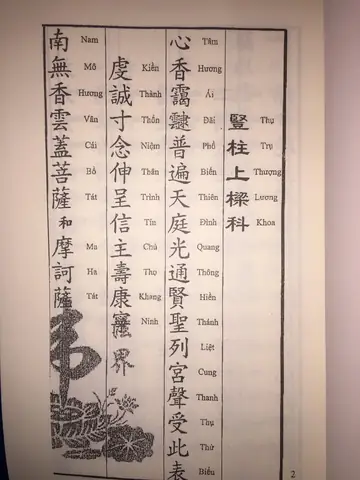 豎柱上樑科
Thụ Trụ Thượng Lương Khoa
心香靄靆普遍天庭光通賢聖列宮聲受此表
Tâm Hương Ái Đãi Phổ Biến Thiên Đình Quang Thông Hiền Thánh Liệt Cung Thanh Thụ Thử Biểu
虔誠寸念伸呈信主壽康寧界
Kiền Thành Thốn Niệm Thân Trình Tín Chủ Thọ Khang Ninh
南無香雲蓋菩薩和摩訶薩
Nam Mô Hương Vân Cái Bồ Tát Ma Ha Tát
2